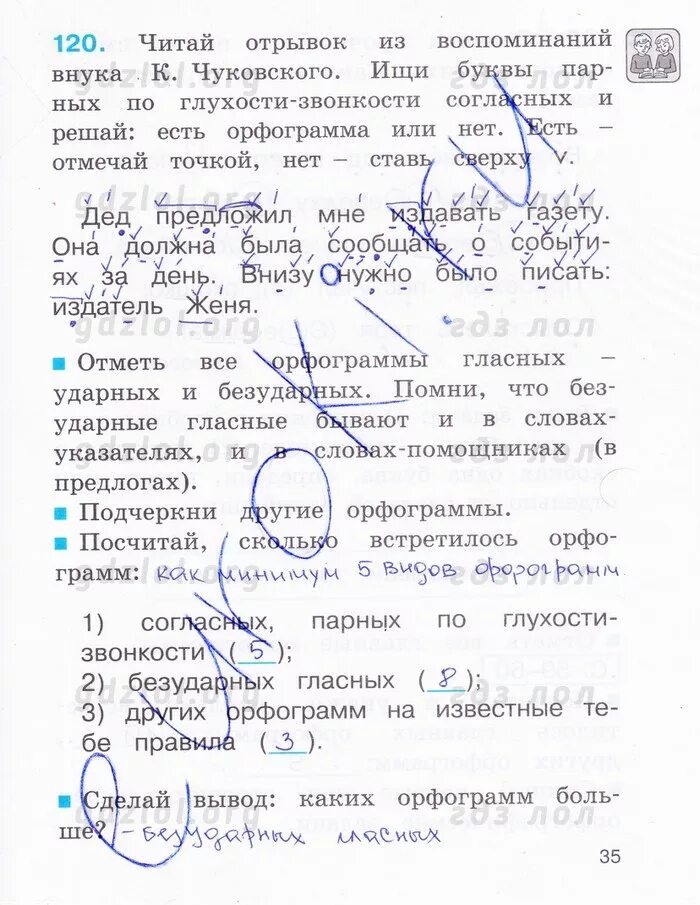 120. Читай отрывок из воспоминаний
внука К. Чуковского. Ищи буквы пар-
ных по глухости-звонкости согласных и
решай: есть орфограмма или нет. Есть –
отмечай точкой, нет – ставь сверху v.
gdzlol.org гдз лол
Дед предложил мне издавать газету.
Она должна была сообщать о событи-
ях за день. Внизу нужно было писать:
издатель Женя.
gdzlol.org гдз лол
Отметь все орфограммы гласных –
ударных и безударных. Помни, что без-
ударные гласные бывают и в словах-
указателях, и в словах-помощниках (в
предлогах).
Подчеркни другие орфограммы.
Посчитай, сколько встретилось орфо-
грамм: как минимум 5 видов орфограмм
1) согласных, парных по глухости-
звонкости (5);
2) безударных гласных (8);
gdzlol.org гдз лол
3) других орфограмм на известные те-
бе правила (3).
Сделай вывод: каких орфограмм боль-
gdzlol.org гдз лол
ше? – безударных гласных
35